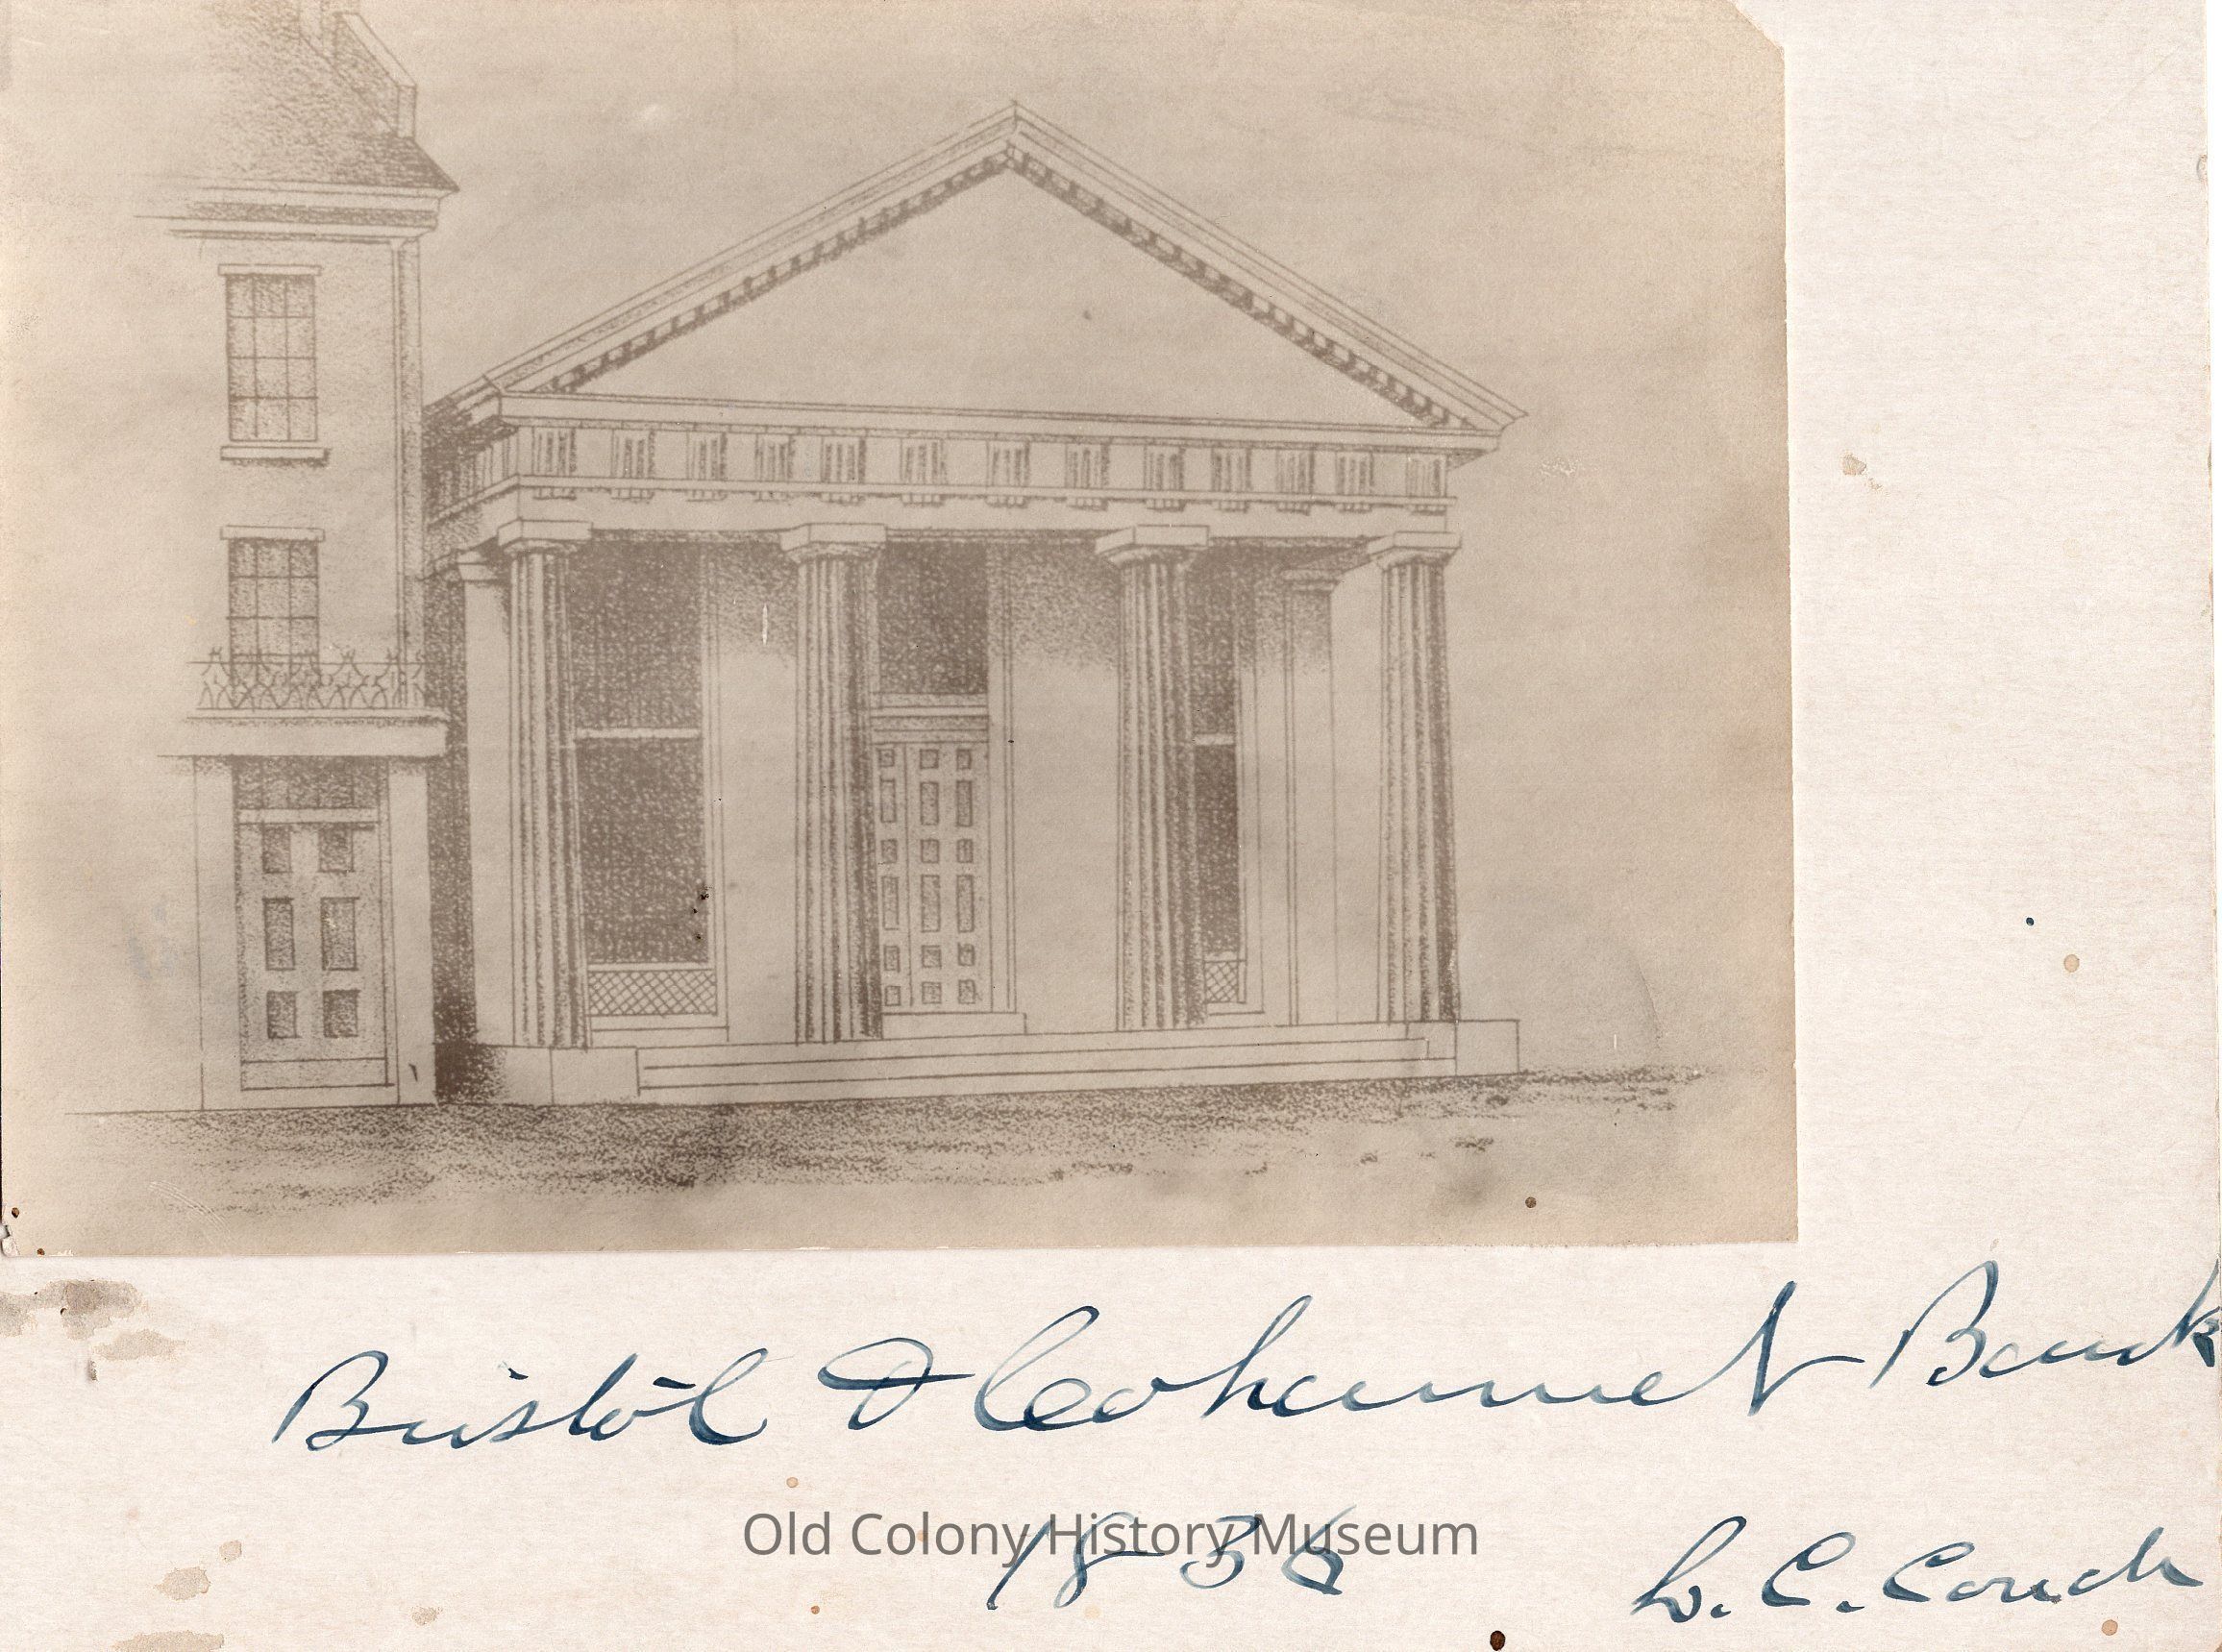 Bristol & Cohannet Bank
Old Colony History Museum
1836
L. C. Couch